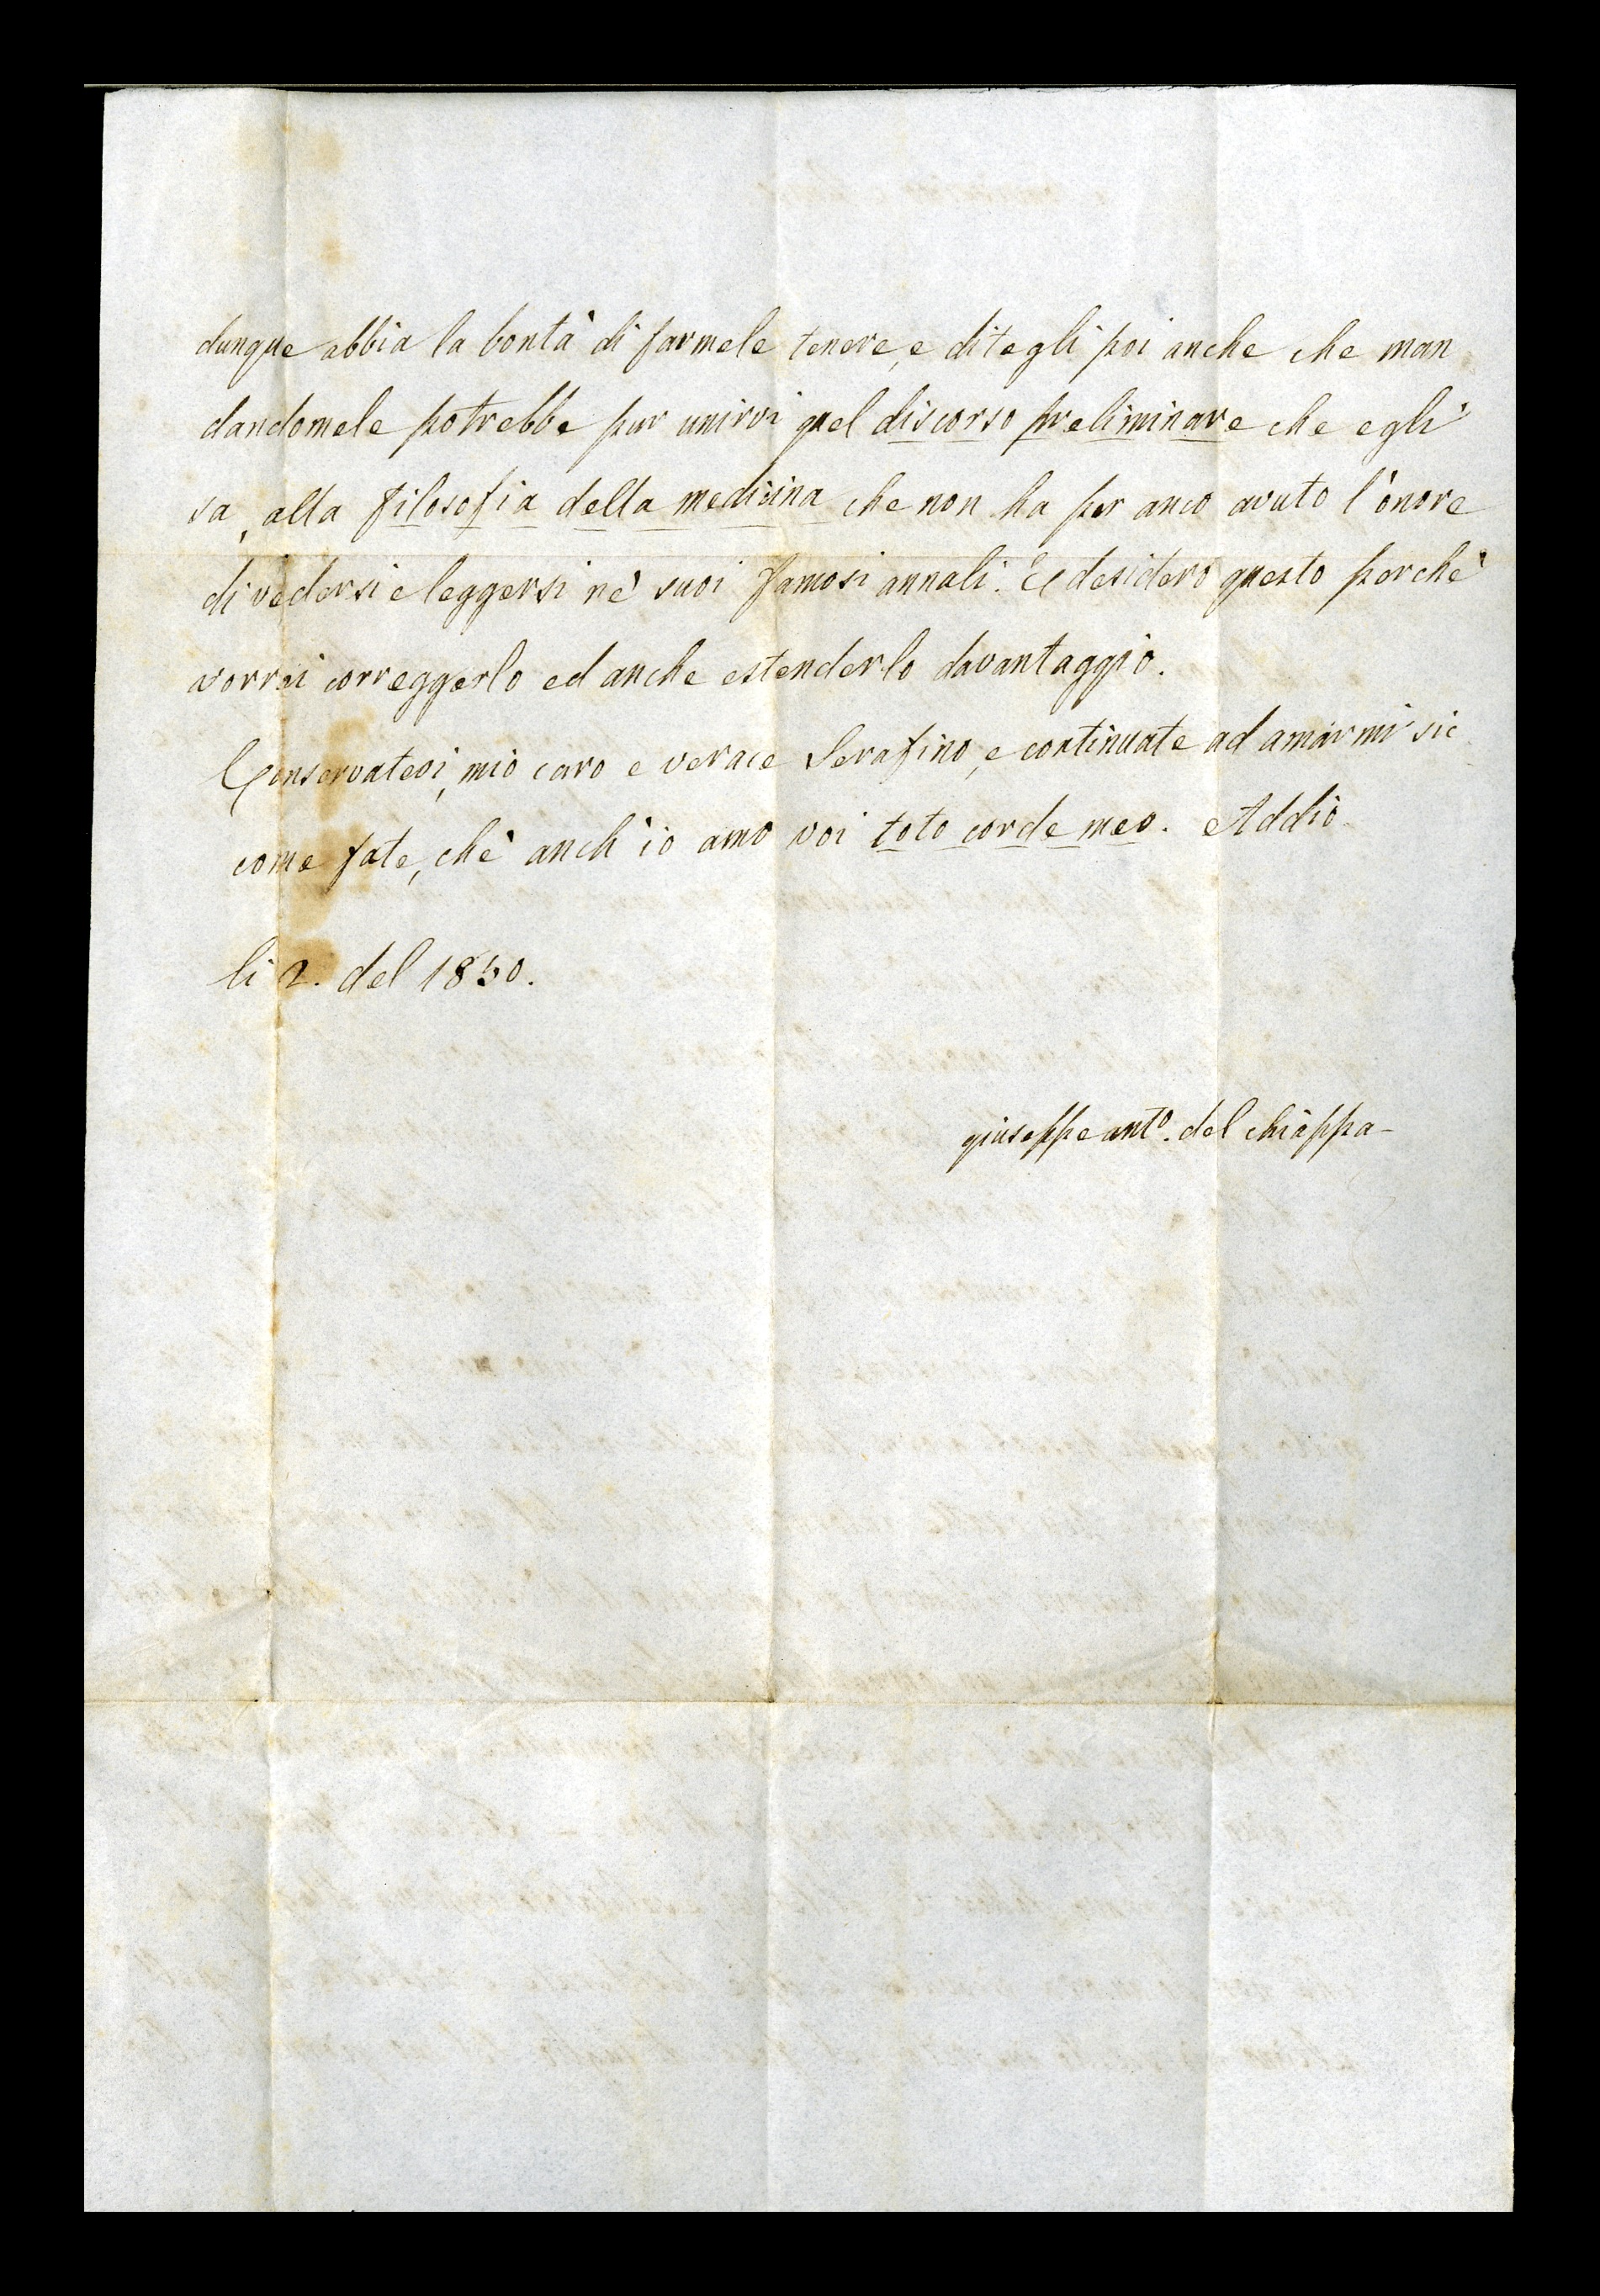 dunque abbia la bontà di farmele tenere, e ditegli poi anche che man
dandomele potrebbe pur unirvi quel discorso preliminare che egli
sa, alla filosofia della medicina che non ha per anco avuto l'onore
di vedersi e leggersi ne' suoi famosi annali. E desidero questo perchè
vorrei correggerlo ed anche estenderlo davantaggio.
Conservatevi, mio caro e verace Serafino, e continuate ad amarmi sic
come fate, chè anch'io amo voi toto corde meo. Addio.
li 2. del 1850.
giuseppe ant.º del chiappa-